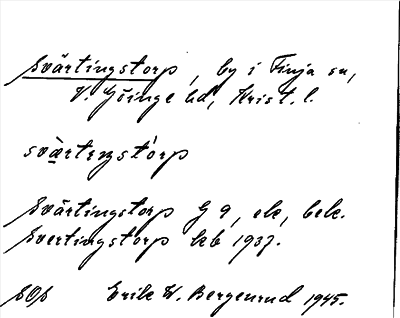 Svärtingstorp, by i Finja sn,
V. Göinge hd, Krist. l.
svæ̀rtɪŋstórp
Svärtingstorp G 9, ek, bek.
Svertingstorp kb 1937.
SOS Erik W. Bergenrud 1945.